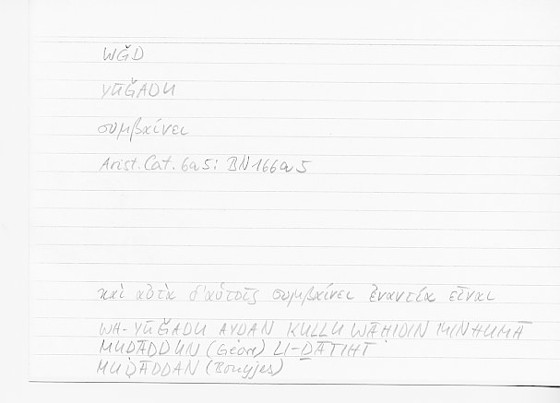 WǦD
YŪǦADU
συμβαίνει
Arist. Cat. 6a5: BN166a5
καὶ αὐτὰ δ'αὑτοῖς συμβαίνει ἐναντία εἶναι
WA-YŪǦADU AYḌAN KULLU WĀḤIDIN MINHUMĀ
MUḌĀDDUN (Géorr) LI-ḎĀTIHĪ
MUḌĀDDAN (Bouyges)